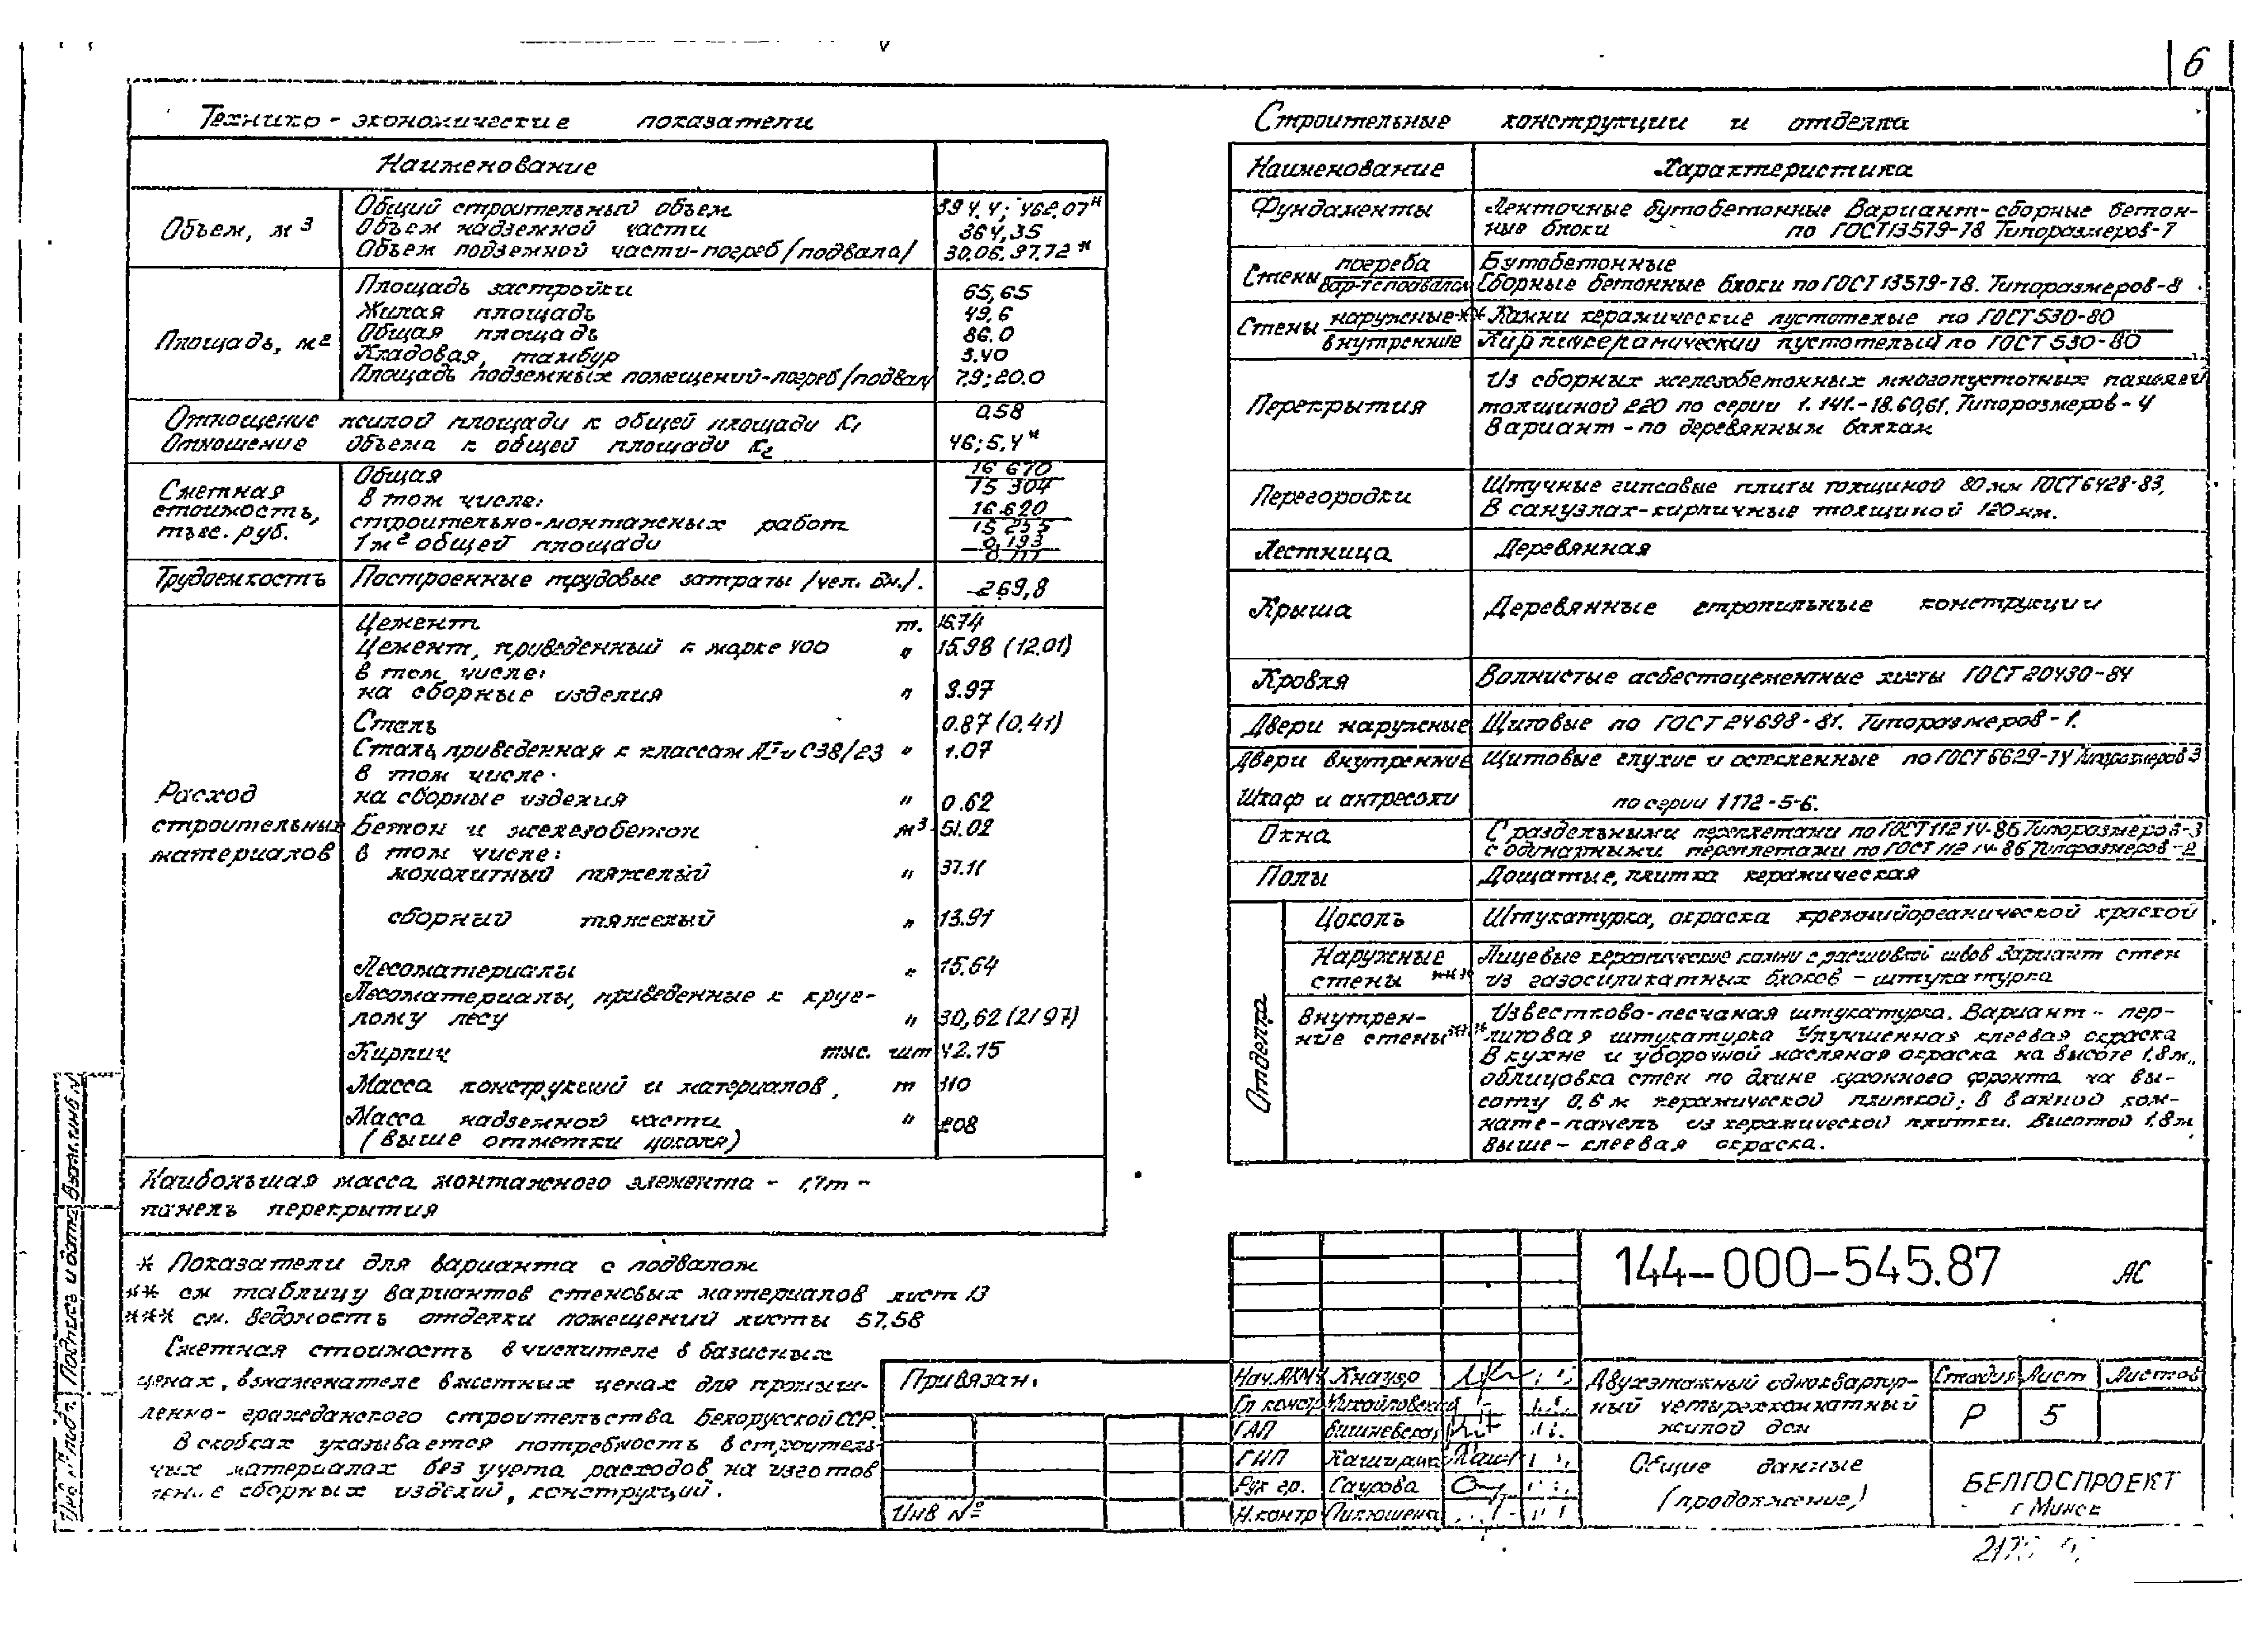 6
Технико - экономические показатели
Наименование
Объем, м3
Общий строительный объем 394.4; 462.07*
Объем надземной части 364,35
Объем подземной части-погреб/подвала/ 30.06. 97.72*
Площадь, м2
Площадь застройки 65,65
Жилая площадь 49.6
Общая площадь 86.0
Кладовая, тамбур 3.40
Площадь подземных помещений-погреб/подвал/ 7.9; 20.0
Отношение жилой площади к общей площади K1 0.58
Отношение объема к общей площади K2 4.6; 5.4*
Сметная стоимость, тыс. руб.
Общая 16 670
15 304
в том числе:
строительно-монтажных работ 16.620
15 255
1м2 общей площади 0,193
Трудоемкость Построенные трудовые затраты /чел. дн./. 269,8
Расход
строительных
материалов
Цемент т. 16.74
Цемент, приведенный к марке 400 " 15.98 (12.01)
в том числе:
на сборные изделия " 3.97
Сталь 0.87 (0.41)
Сталь, приведенная к классам АI и С38/23 " 1.07
в том числе:
на сборные изделия " 0.62
Бетон и железобетон м3 51.02
в том числе:
монолитный тяжелый " 37.11
сборный тяжелый " 13.91
Лесоматериалы " 15.64
Лесоматериалы, приведенные к круг-
лому лесу " 30,62 (21 97)
Кирпич тыс. шт 42.15
Масса конструкций и материалов, т 110
Масса надземной части " 208
(выше отметки цоколя)
Наибольшая масса монтажного элемента - 1,7т -
панель перекрытия
* Показатели для варианта с подвалом
** см таблицу вариантов стеновых материалов лист 13
*** см. Ведомость отделки помещений листы 57,58
Сметная стоимость в числителе в базисных
ценах, в знаменателе в местных ценах для промыш-
ленно-гражданского строительства Белорусской ССР.
В скобках указывается потребность в строитель
ных материалах без учета расходов на изготов
ление сборных изделий, конструкций.
Строительные конструкции и отделка
Наименование Характеристика
Фундаменты Ленточные бутобетонные Вариант-сборные бетон-
ные блоки по ГОСТ 13579-78 Типоразмеров-7
Стены погреба Бутобетонные
вар-те подвала Сборные бетонные блоки по ГОСТ 13579-78. Типоразмеров-8
Стены наружные** Камни керамические пустотелые по ГОСТ 530-80
внутренние Кирпич керамический пустотелый по ГОСТ 530-80
Перекрытия Из сборных железобетонных многопустотных панелей
толщиной 220 по серии 1.141.-18.60,61. Типоразмеров-4
Вариант - по деревянным балкам
Перегородки Штучные гипсовые плиты толщиной 80мм ГОСТ 6428-83,
В санузлах-кирпичные толщиной 120мм.
Лестница Деревянная
Крыша Деревянные стропильные конструкции
Кровля Волнистые асбестоцементные листы ГОСТ 20430-84
Двери наружные Щитовые по ГОСТ 24698-81. Типоразмеров-1.
Двери внутренние Щитовые глухие и остекленные по ГОСТ 6629-74 Типоразмеров 3
Шкаф и антресоли по серии 1 172-5-6.
Окна С раздельными переплетами по ГОСТ 112 14-86 Типоразмеров-3
с одинарными переплетами по ГОСТ 112 14-86 Типоразмеров-2
Полы Дощатые, плитка керамическая
Отделка
Цоколь Штукатурка, окраска кремнийорганической краской
Наружные Лицевые керамические камни с расшивкой швов Вариант стен
стены *** из газосиликатных блоков - штукатурка
Внутрен- Известково-песчаная штукатурка. Вариант - пер-
ние стены*** литовая штукатурка Улучшенная клеевая окраска
В кухне и уборочной масляная окраска на высоте 1,8м,,
облицовка стен по длине кухонного фронта на вы-
соту 0,6м керамической плиткой; в ванной ком-
нате-панель из керамической плитки. Высотой 1,8м
Выше - клеевая окраска.
144-000-545.87 АС
Привязан:
Инв №
Нач.АКМ4 Кнауцо
Гл констр Михайловский
ГАП Вишневская
ГИП Каширина
Рук гр. Саурова
Н.контр Пилюшена
Двухэтажный одноквартир-
ный четырехкомнатный
жилой дом
Стадия Лист Листов
Р 5
Общие данные
(продолжение)
БЕЛГОСПРОЕКТ
г Минск
Инв №подл. Подпись и дата Взам.инв.№